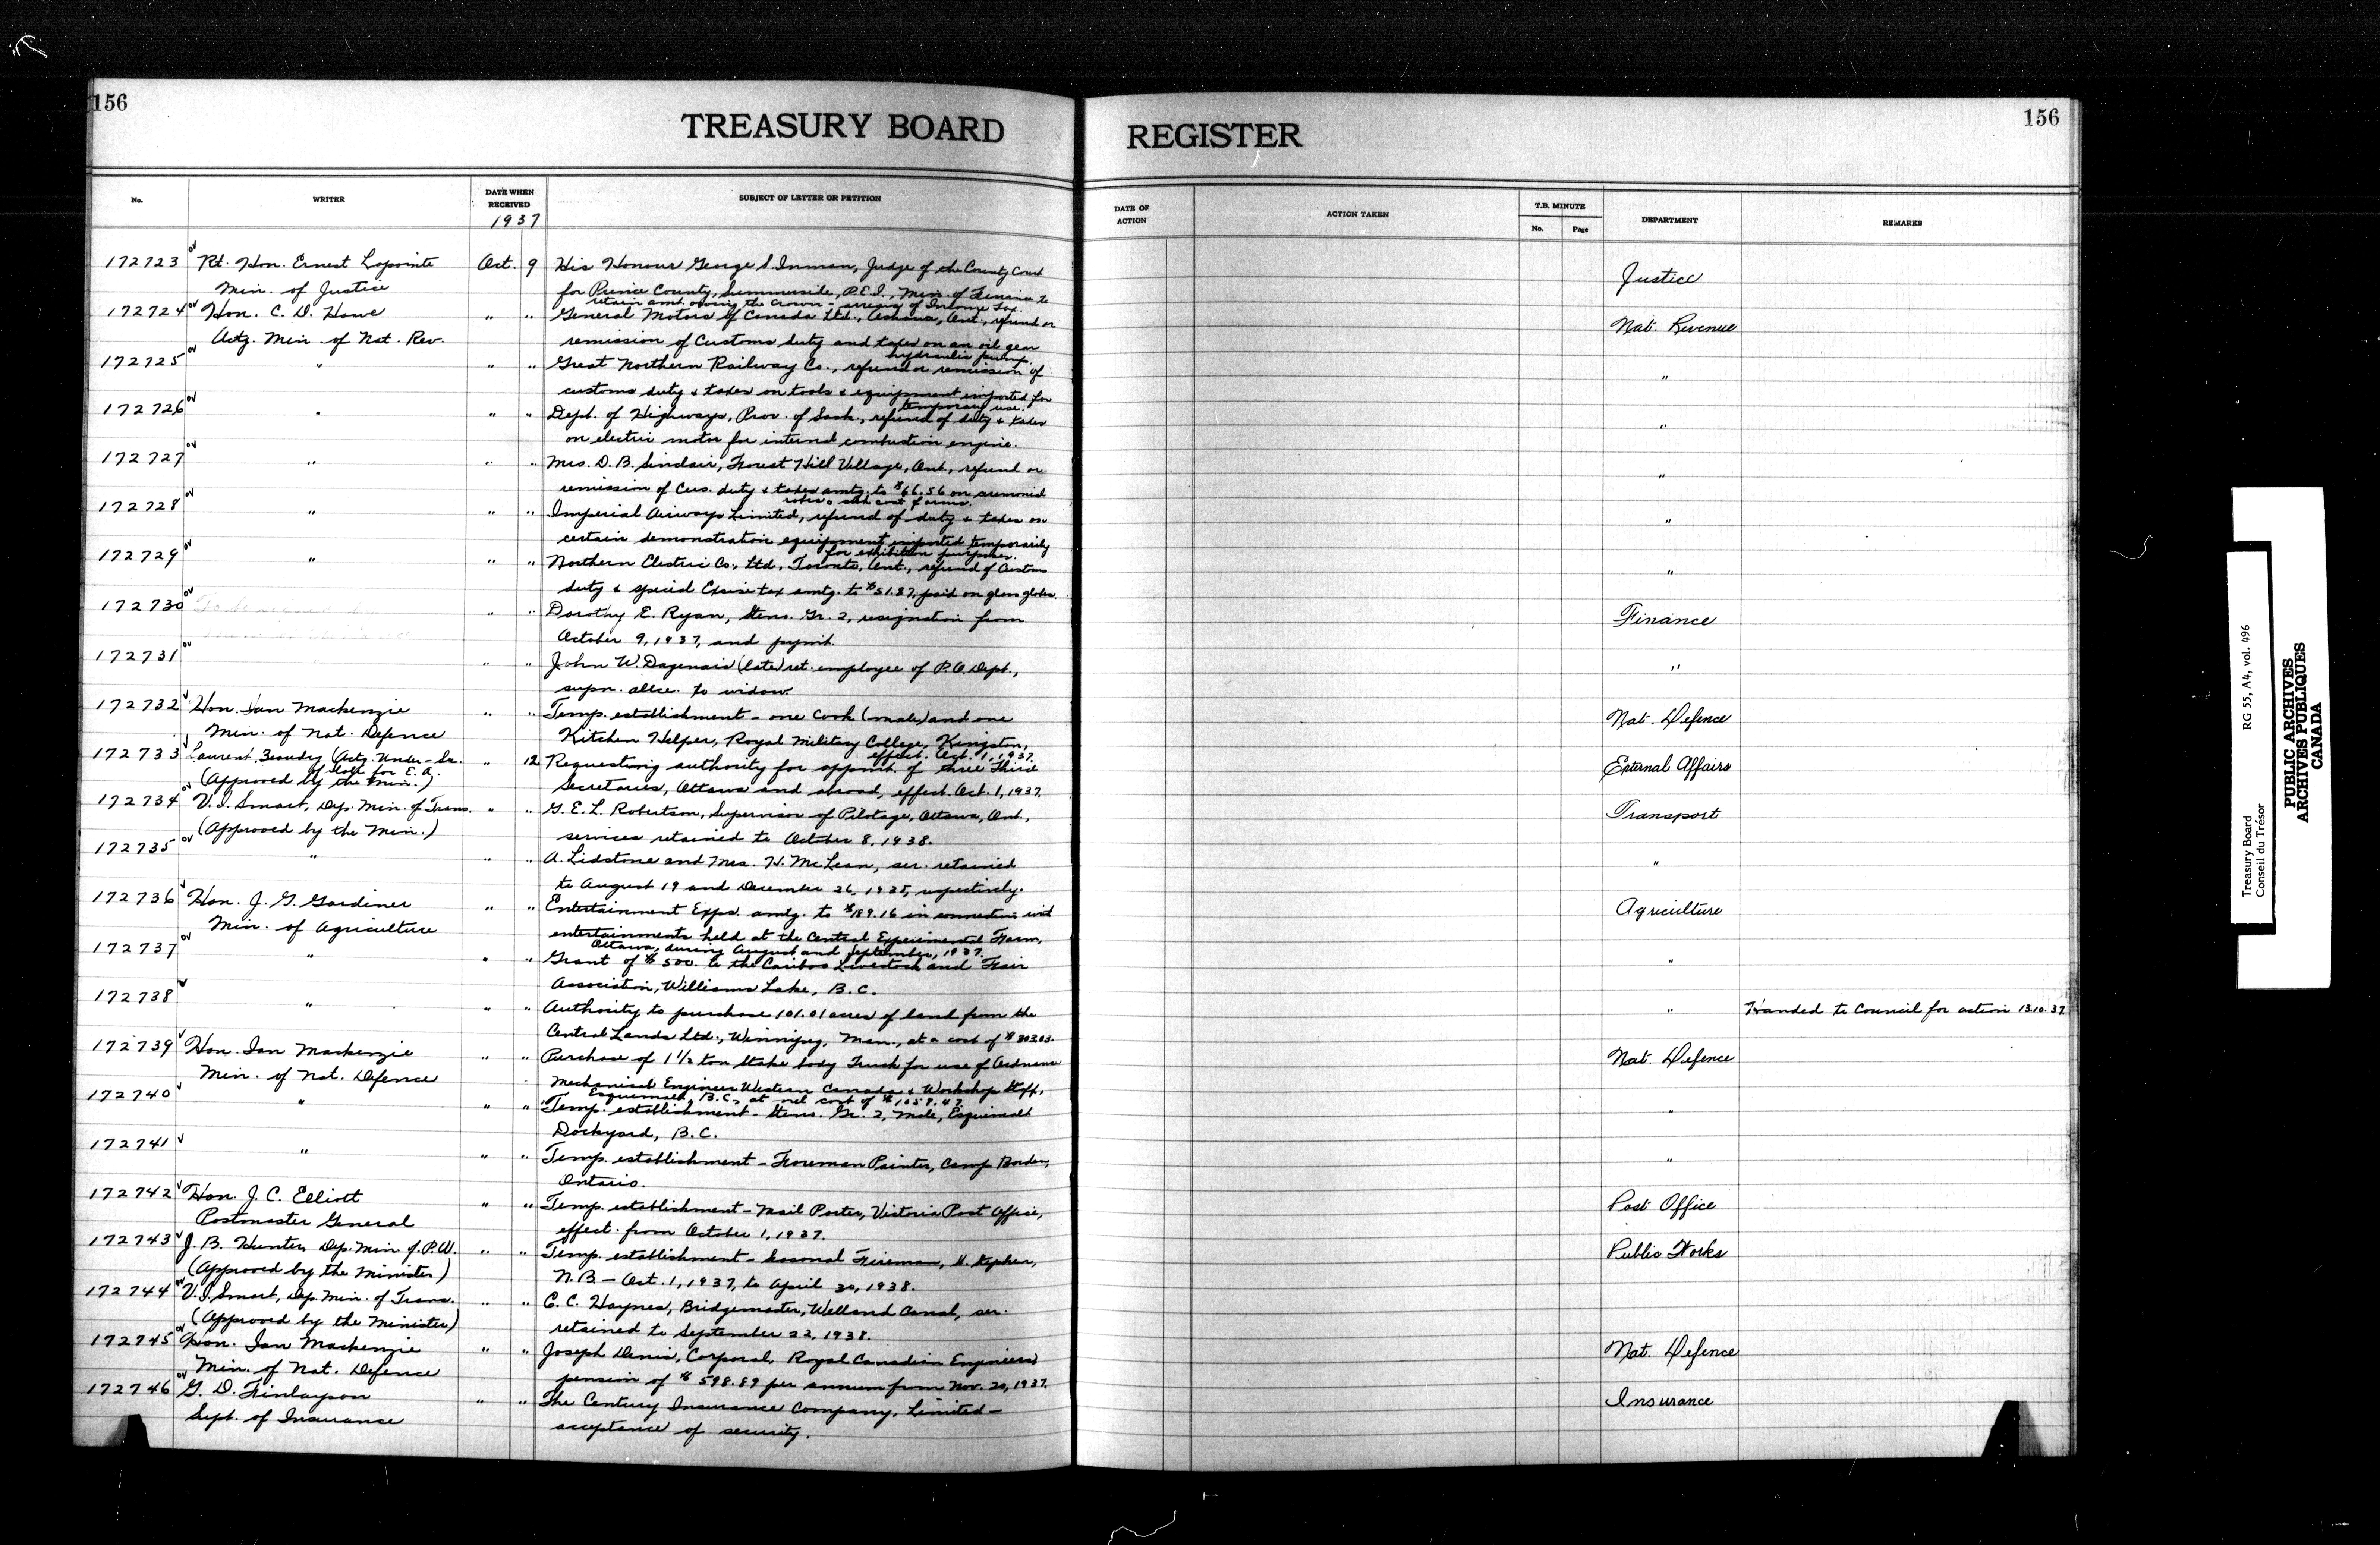 156
TREASURY BOARD
REGISTER
156
No.
WRITER
DATE WHEN RECEIVED
1937
SUBJECT OF LETTER OR PETITION
DATE OF ACTION
ACTION TAKEN
T.B. MINUTE
No.
Page
DEPARTMENT
REMARKS
172723 ov Rt. Hon. Ernest Lapointe Oct. 9 His Honour George S. Inman, Judge of the County Court Justice
Min. of Justice for Prince County, Summerside, P.E.I., Min. of Finance to
retain amt. owing the Crown - arrears of Income Tax.
172724 ov Hon. C. D. Howe " " General Motors of Canada Ltd., Oshawa, Ont., refund or Nat. Revenue
Actg. Min. of Nat. Rev. remission of Customs duty and taxes on an oil gear
hydraulic pump.
172725 ov " " " Great Northern Railway Co., refund or remission of "
customs duty & taxes on tools & equipment imported for
temporary use.
172726 ov " " " Dept. of Highways, Prov. of Sask., refund of duty & taxes "
on electric motor for internal combustion engine.
172727 ov " " " Mrs. D. B. Sinclair, Forest Hill Village, Ont., refund or "
remission of Cus. duty & taxes amtg. to $66.56 on
172728 ov " " " Imperial Airways Limited, refund of duty & taxes on "
certain demonstration equipment imported temporarily
for exhibition purposes.
172729 ov " " " Northern Electric Co., Ltd., Toronto, Ont., refund of Customs "
duty & special Excise tax amtg. to $51.87, paid on glass globes.
172730 ov " " Dorothy E. Ryan, Steno. Gr. 2, resignation from Finance
October 9, 1937, and paymt.
172731 ov " " John W. Dagenais (late) ret. employee of P.O. Dept., "
supn. allce. to widow.
172732 v Hon. Ian Mackenzie " " Temp. establishment - one Cook (male) and one Nat. Defence
Min. of Nat. Defence Kitchen Helper, Royal Military College, Kingston,
effect. Oct. 1, 1937.
172733 v Laurent Beaudry (Actg. Under-Sec. " 12 Requesting authority for appmt. of three Third External Affairs
of State for E.A.
(Approved by the Min.) Secretaries, Ottawa and abroad, effect. Oct. 1, 1937.
172734 ov V. I. Smart, Dep. Min. of Trans. " " G. E. L. Robertson, Supervisor of Pilotage, Ottawa, Ont., Transport
(Approved by the Min.) services retained to October 8, 1938.
172735 ov " " " A. Lidstone and Mrs. H. McLean, ser. retained "
to August 19 and December 26, 1938, respectively.
172736 v Hon. J. G. Gardiner " " Entertainment Exps. amtg. to $189.16 in connection with Agriculture
Min. of Agriculture entertainments held at the Central Experimental Farm,
Ottawa, during August and September, 1937.
172737 ov " " " Grant of $500. to the Cariboo Livestock and Fair "
Association, Williams Lake, B.C.
172738 v " " " Authority to purchase 101.01 acres of land from the " Handed to Council for action 13.10.37
Central Lands Ltd., Winnipeg, Man., at a cost of $303.03.
172739 v Hon. Ian Mackenzie " " Purchase of 1 1/2 ton Stake body Truck for use of Ordnance Nat. Defence
Min. of Nat. Defence Mechanical Engineer Western Canada & Workshop Staff,
Esquimalt, B.C., at net cost of $1059.47.
172740 v " " " Temp. establishment - Steno. Gr. 2, Male, Esquimalt "
Dockyard, B.C.
172741 v " " " Temp. establishment - Foreman Painter, Camp Borden, "
Ontario.
172742 v Hon. J. C. Elliott " " Temp. establishment - Mail Porter, Victoria Post Office, Post Office
Postmaster General effect. from October 1, 1937.
172743 v J. B. Hunter, Dep. Min. of P.W. " " Temp. establishment - Seasonal Fireman, St. Stephen, Public Works
(Approved by the Minister) N.B. - Oct. 1, 1937, to April 30, 1938.
172744 ov V. I. Smart, Dep. Min. of Trans. " " C. C. Haynes, Bridgemaster, Welland Canal, ser.
(Approved by the Minister) retained to September 22, 1938.
172745 ov Hon. Ian Mackenzie " " Joseph Denis, Corporal, Royal Canadian Engineers, Nat. Defence
Min. of Nat. Defence pension of $598.89 per annum from Nov. 20, 1937.
172746 ov G. D. Finlayson " " The Century Insurance Company, Limited - Insurance
Supt. of Insurance acceptance of security.
Treasury Board
Conseil du Trésor
RG 55, A4, vol. 496
PUBLIC ARCHIVES
ARCHIVES PUBLIQUES
CANADA